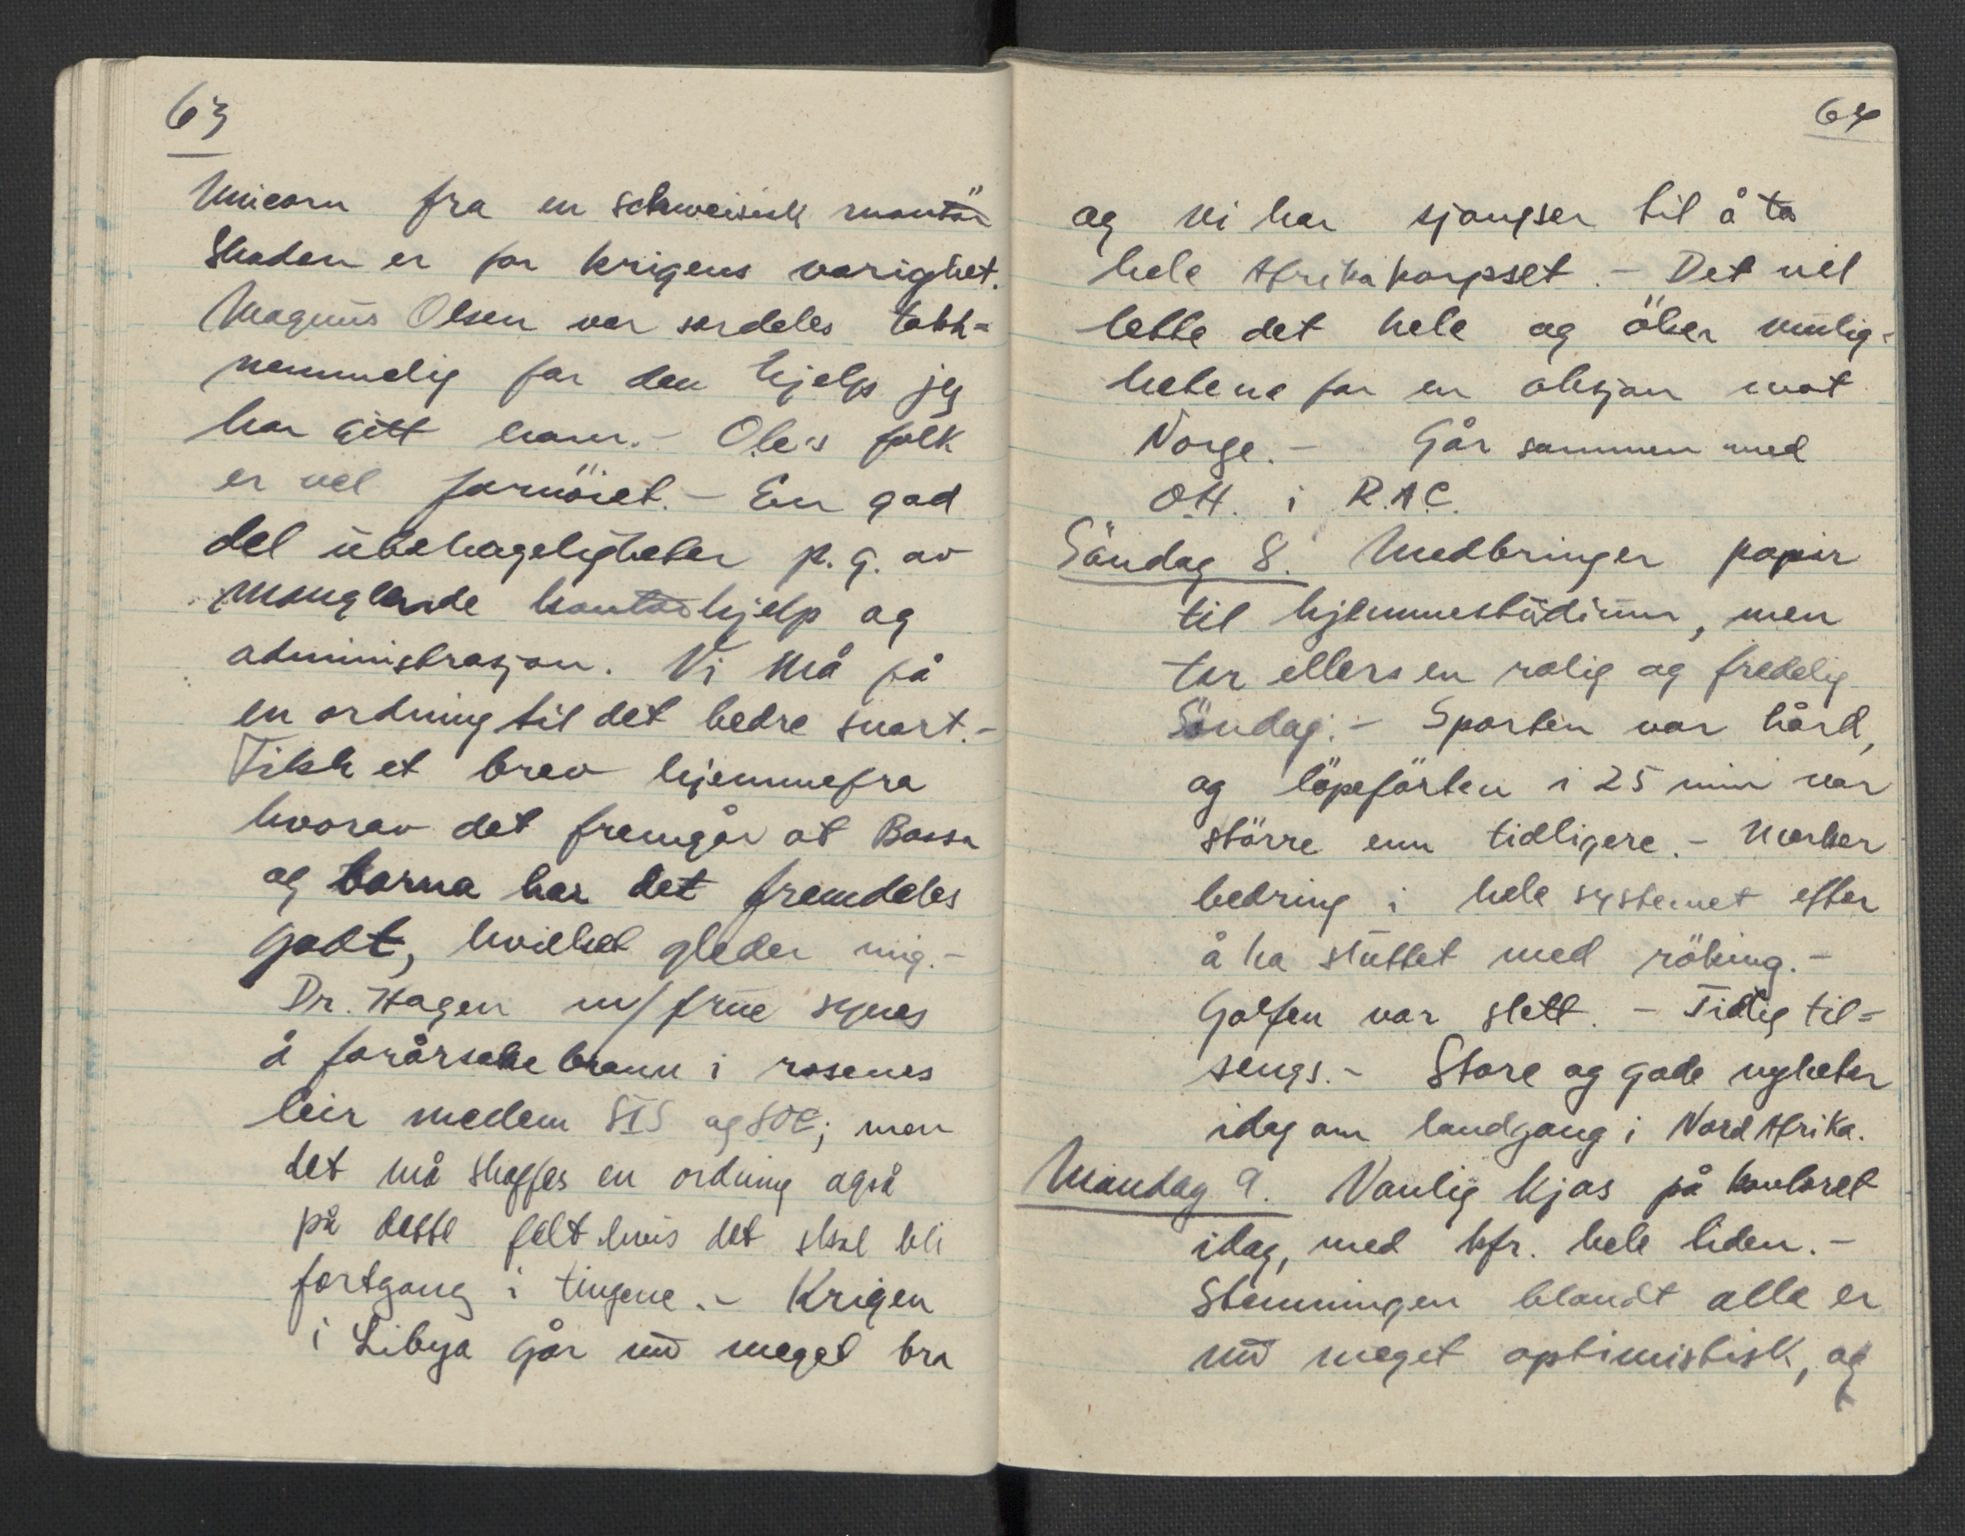 63
Unicorn fra en schweisisk montör
Skaden er for krigens varighet.
Magnus Olsen var særdeles takk=
nemmelig for den hjelp jeg
har gitt ham. - Ole's folk
er vel fornöiet. - En god
del ubehageligheter p. g. av
manglende kontorhjelp og
administrasjon. Vi må få
en ordning til det bedre snart. -
Fikk et brev hjemmefra
hvorav det fremgår at Bassa
og barna har det fremdeles
godt, hvilket gleder mig. -
Dr. Hagen m/ frue synes
å forårsake brann i rosenes
leir mellem SIS og SOE; men
det må skaffes en ordning også
på dette felt hvis det skal bli
fortgang i tingene. - Krigen
i Libya går nu meget bra
64
og vi har sjangser til å ta
hele Afrikakorpset. - Det vil
lette det hele og öker mulig=
hetene for en aksjon mot
Norge. - Går sammen med
O.H. i R.A.C.
Söndag 8. Medbringer papir
til hjemmestudium, men
tar ellers en rolig og fredelig
Söndag. - Sporten var hård,
og löpefarten i 25 min var
större enn tidligere. - Merker
bedring i hele systemet efter
å ha sluttet med röking. -
Golfen var slett. - Tidlig til=
sengs. - Store og gode nyheter
idag om landgang i Nord Afrika.
Mandag 9. Vanlig kjas på kontoret
idag, med kfr. hele tiden. -
Stemningen blandt alle er
nu meget optimistisk, og